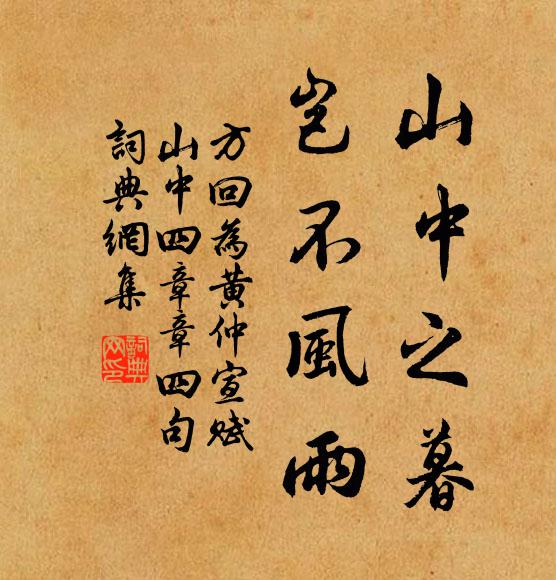 山中之暮
豈不風雨
方回為黃仲宣賦
山中四章章四句
詞典網集
詞典网印